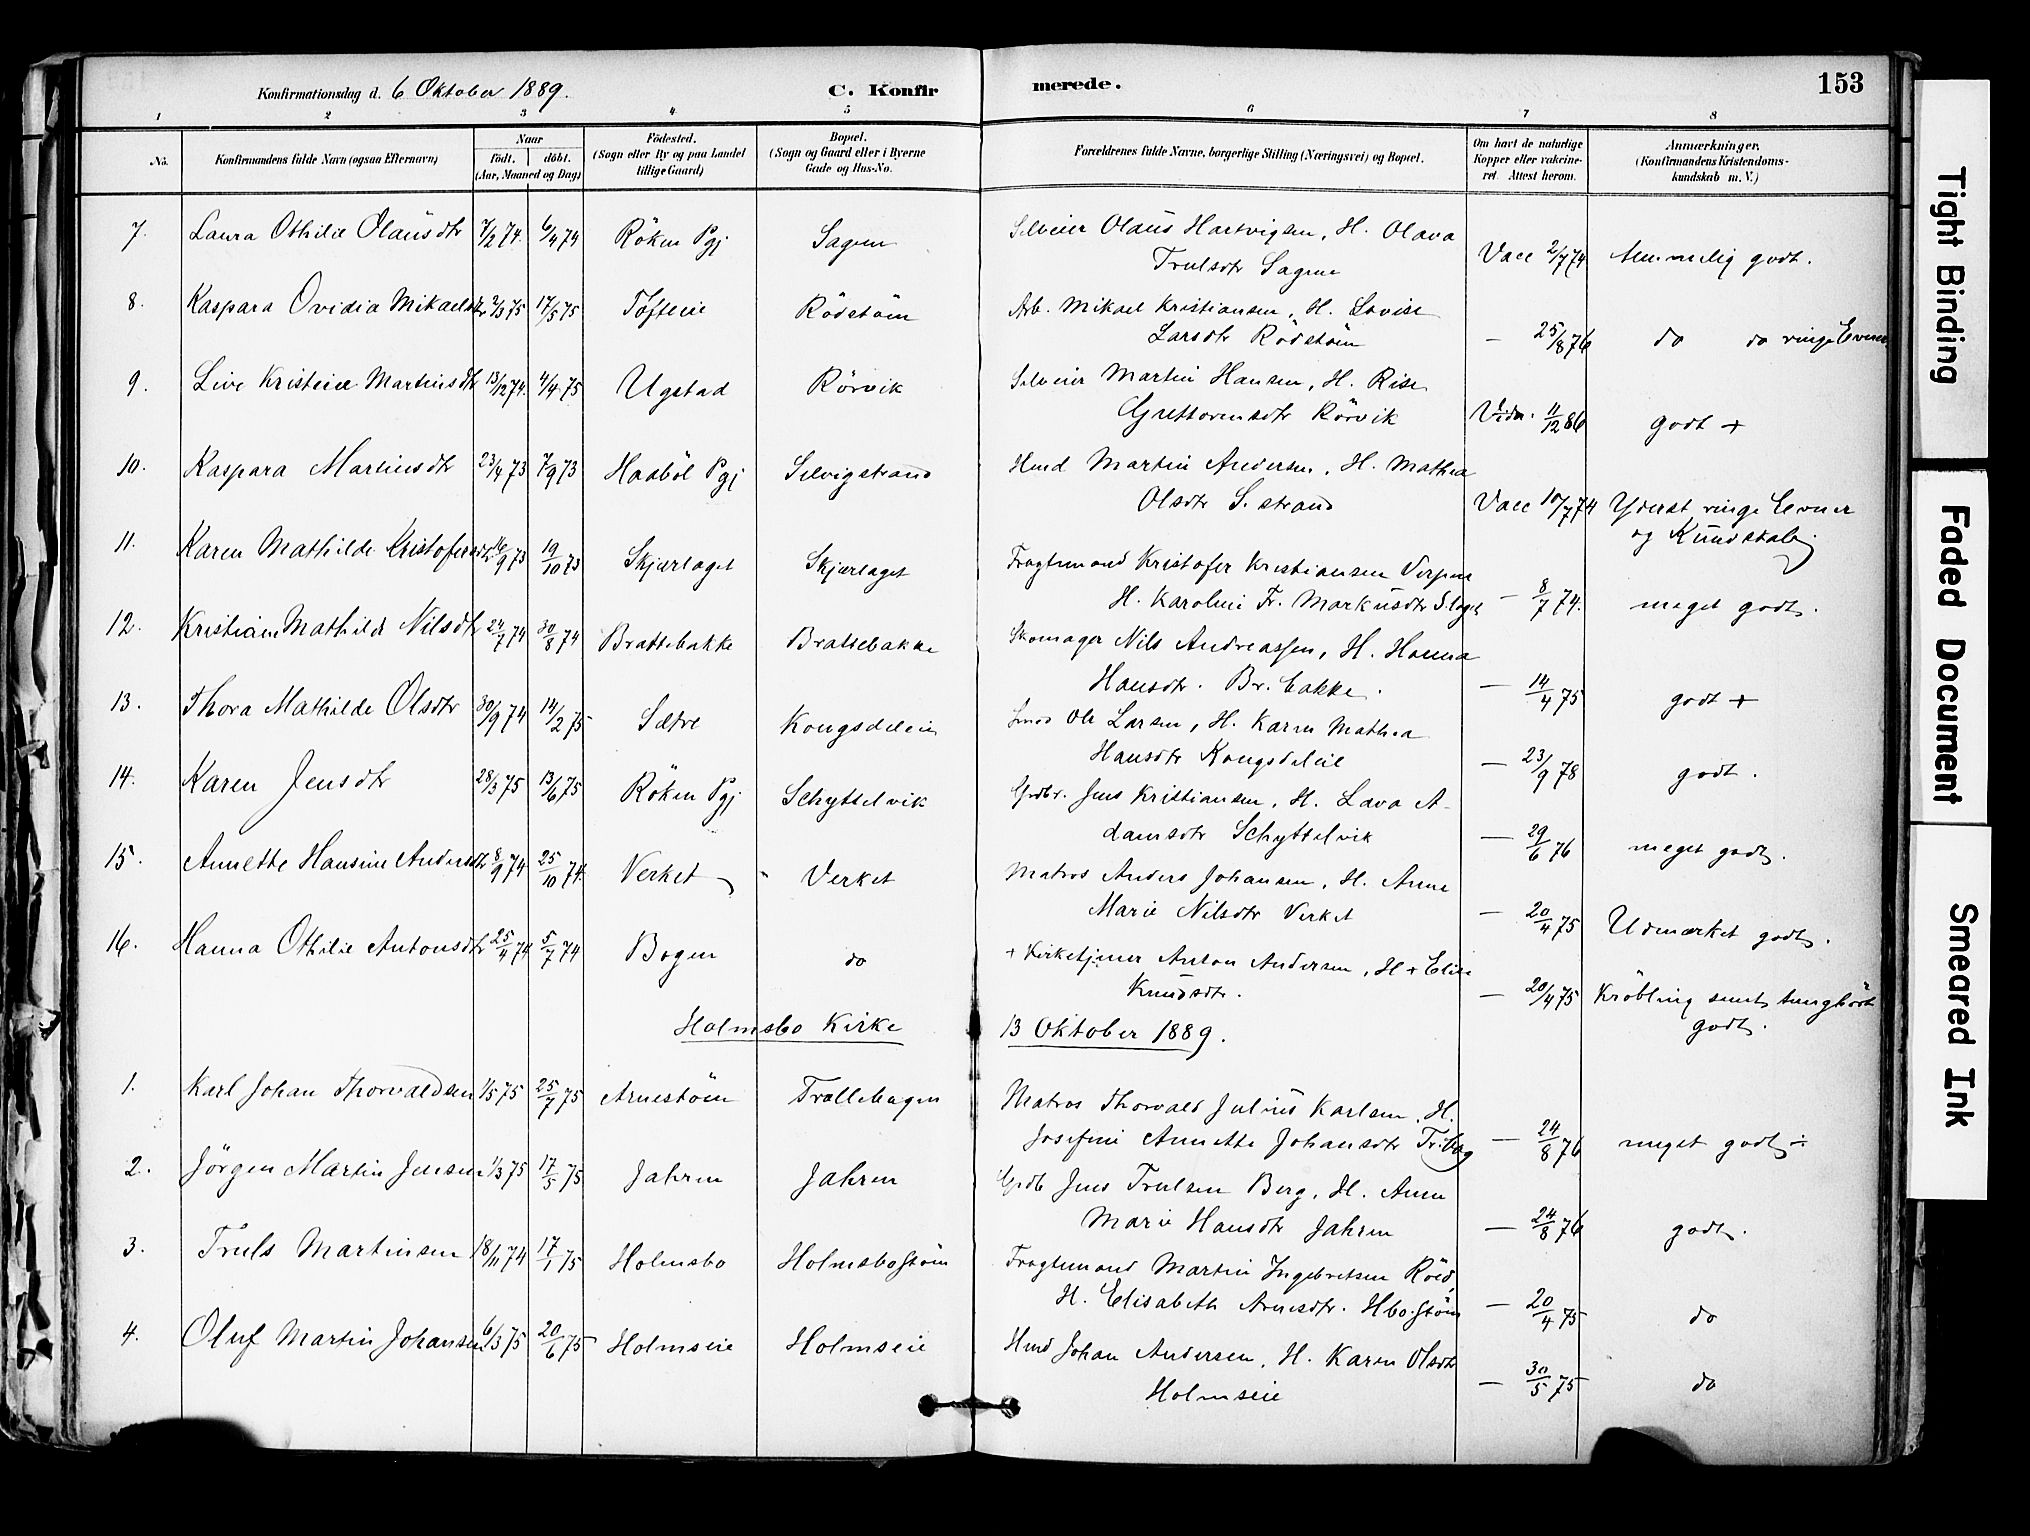 Konfirmationsdag d. 6 Oktober 1889.
C. Konfirmerede.
153
1 2 3 4 5 6 7 8
No. Konfirmandens fulde Navn (ogsaa Efternavn) Naar født. døbt. (Aar, Maaned og Dag) Födested. (Sogn eller By og paa Landet tillige Gaard) Bopæl. (Sogn og Gaard eller i Byerne Gade og Hus-No. Forældrenes fulde Navne, borgerlige Stilling (Næringsvei) og Bopæl. Om havt de naturlige Kopper eller vakcineret. Attest herom. Anmærkninger. (Konfirmandens Kristendomskundskab m. V.)
7. Laura Othilie Olausdtr 7/2 74. 6/4 74 Röken Pgj Sagen Selveier Olaus Hartvigsen, H. Olava
Trulsdtr Sagene Vacc 2/7 74 Temmelig godt.
8. Kaspara Ovidia Mikaelsdtr 2/3 75 17/5 75 Tofteeie Rödstöm Arb. Mikael Kristiansen, H. Lovise
Larsdtr Rödstöm — 25/8 76 do do ringe Evner
9. Live Kristine Martinsdtr 13/12 74. 4/4 75 Ugstad Rörvik Selveier Martin Hansen, H. Rise
Guttormsdtr Rörvik 11/12 86 godt +
10. Kaspara Martinsdtr 23/4 73 7/9 73 Haaböl Pgj Selvigstrand Hmd Martin Andersen, H. Mathea
Olsdtr S. strand Vacc 10/7 74 Yderst ringe Evner
og Kundskab
11. Karen Mathilde Kristofersdtr 16/9 73 19/10 73 Skjærlaget Skjærlaget Fragtemand Kristofer Kristiansen Verpen
H. Karoline Fr. Markusdtr S.laget — 8/7 74. meget godt.
12. Kristiane Mathilde Nilsdtr 24/7 74 30/8 74 Brattebakke Brattebakke Skomager Nils Andreassen, H. Hanna
Hansdtr. Br. bakke. — 14/4 75 godt +
13. Thora Mathilde Olsdtr 30/9 74 14/2 75 Sætre Kongsdeleie Smed Ole Larsen, H. Karen Mathea
Hansdtr Kongsdeleie — 23/9 78 godt.
14. Karen Jensdtr 28/3 75 13/6 75 Röken Pgj Schyttelvik Grdbr. Jens Kristiansen, H. Lava A-
damsdtr Schyttelvik — 29/6 76 meget godt.
15. Annette Hansine Andersdtr 8/9 74 25/10 74. Verket Verket Matros Anders Johansen, H. Anne
Marie Nilsdtr Verket — 20/4 75 Udmærket godt.
16. Hanna Othilie Antonsdtr 25/4 74 5/7 74 Bogen do + Kirketjener Anton Andersen, H + Elise
Knudsdtr. — 20/4 75 Kröbling samt tunghört
godt.
Holmsbo Kirke 13 Oktober 1889.
1. Karl Johan Thorvaldsen 1/5 75 25/7 75 Arnestöm Trollebagen Matros Thorvald Julius Karlsen, H.
Josefine Annette Johansdtr Tr.bag — 24/8 76 meget godt ÷
2. Jörgen Martin Jensen 1/3 75 17/5 75 Jahren Jahren Grdb Jens Trulsen Berg, H. Anne
Marie Hansdtr Jahren — 24/8 76 godt.
3. Truls Martinsen 18/11 74 17/1 75 Holmsbo Holmsbostöm Fragtemand Martin Ingebretsen Röed,
H. Elisabeth Arnesdtr. Hbo.stöm — 20/4 75 do
4. Oluf Martin Johansen 6/3 75 20/6 75 Holmseie Holmseie Hmd Johan Andersen, H. Karen Olsdtr
Holmseie — 30/5 75 do
Tight Binding
Faded Document
Smeared Ink